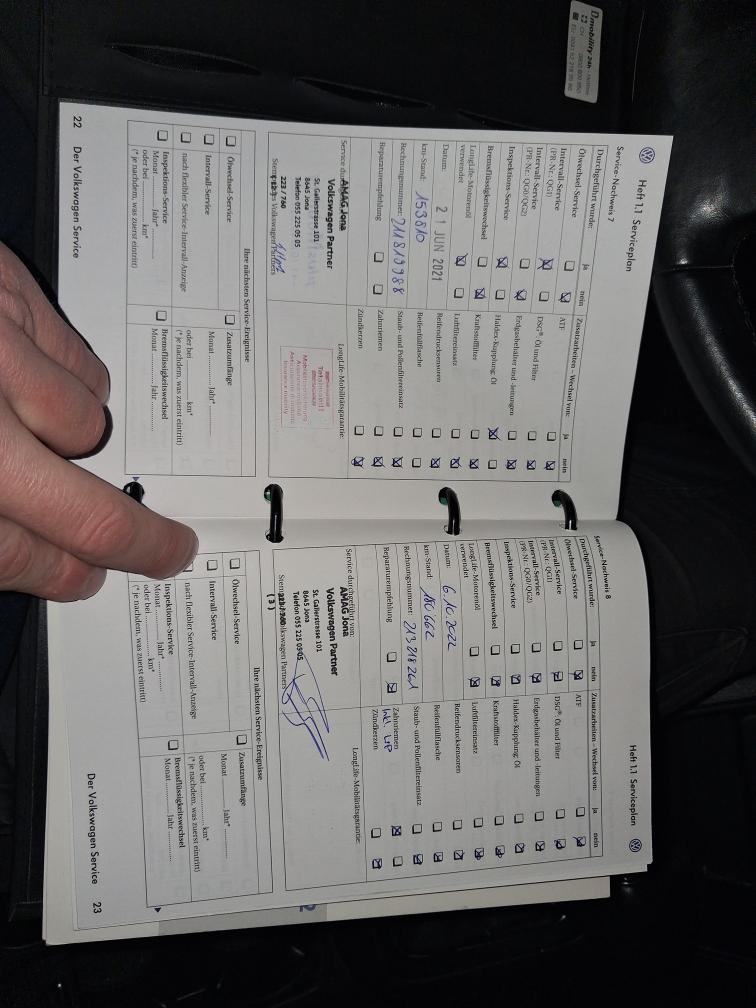 Heft 1.1 Serviceplan
Service-Nachweis 7
Durchgeführt wurde: ja nein
Ölwechsel-Service
Intervall-Service
(PR-Nr.: QG1)
Intervall-Service
(PR-Nr.: QG0/QG2)
Inspektions-Service
Bremsflüssigkeitswechsel
LongLife-Motorenöl
verwendet
Datum: 21 JUN 2021
km-Stand: 153810
Rechnungsnummer: 211819988
Reparaturempfehlung
Zusatzarbeiten – Wechsel von: ja nein
ATF
DSG®-Öl und Filter
Erdgasbehälter und -leitungen
Haldex-Kupplung: Öl
Kraftstofffilter
Luftfiltereinsatz
Reifendrucksensoren
Reifenfüllflasche
Staub- und Pollenfiltereinsatz
Zahnriemen
Zündkerzen
AMAG Jona
Volkswagen Partner
St. Gallerstrasse 101
8645 Jona
Telefon 055 225 05 05
223 / 760
LongLife-Mobilitätsgarantie:
Totalmobil!
Ihre nächsten Service-Ereignisse
Ölwechsel-Service
Intervall-Service
nach flexibler Service-Intervall-Anzeige
Inspektions-Service
Monat .......... Jahr*
oder bei .......... km*
(* je nachdem, was zuerst eintritt)
Zusatzumfänge
Monat .......... Jahr*
oder bei .......... km*
(* je nachdem, was zuerst eintritt)
Bremsflüssigkeitswechsel
Monat .......... Jahr
22 Der Volkswagen Service
Heft 1.1 Serviceplan
Service-Nachweis 8
Durchgeführt wurde: ja nein
Ölwechsel-Service
Intervall-Service
(PR-Nr.: QG1)
Intervall-Service
(PR-Nr.: QG0/QG2)
Inspektions-Service
Bremsflüssigkeitswechsel
LongLife-Motorenöl
verwendet
Datum: 6.10.2022
km-Stand: 180'662
Rechnungsnummer: 213218261
Reparaturempfehlung
Zusatzarbeiten – Wechsel von: ja nein
ATF
DSG®-Öl und Filter
Erdgasbehälter und -leitungen
Haldex-Kupplung: Öl
Kraftstofffilter
Luftfiltereinsatz
Reifendrucksensoren
Reifenfüllflasche
Staub- und Pollenfiltereinsatz
Zahnriemen
Inkl. WP
Zündkerzen
Service durchgeführt von:
AMAG Jona
Volkswagen Partner
St. Gallerstrasse 101
8645 Jona
Telefon 055 225 05 05
( 3 )
LongLife-Mobilitätsgarantie:
Ihre nächsten Service-Ereignisse
Ölwechsel-Service
Intervall-Service
nach flexibler Service-Intervall-Anzeige
Inspektions-Service
Monat .......... Jahr*
oder bei .......... km*
(* je nachdem, was zuerst eintritt)
Zusatzumfänge
Monat .......... Jahr*
oder bei .......... km*
(* je nachdem, was zuerst eintritt)
Bremsflüssigkeitswechsel
Monat .......... Jahr
Der Volkswagen Service 23